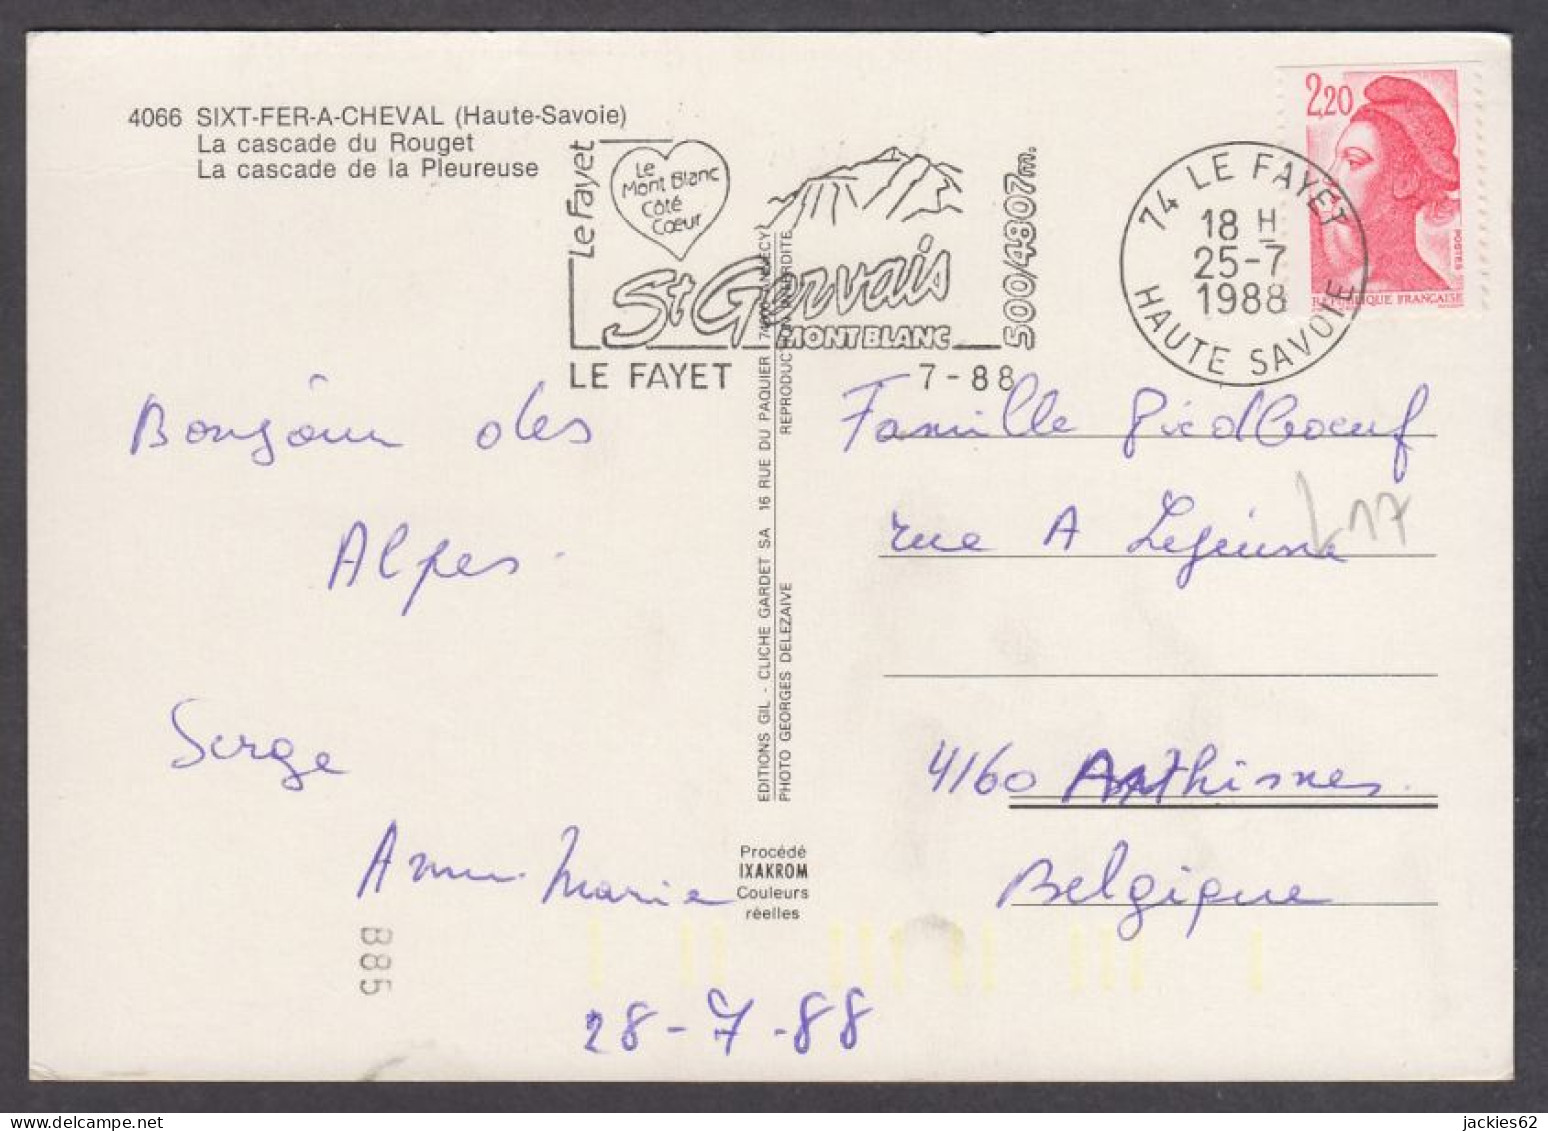 4066 SIXT-FER-A-CHEVAL (Haute-Savoie)
La cascade du Rouget
La cascade de la Pleureuse
Le Fayet
Le
Mont Blanc
Côté
Cœur
St Gervais
MONT BLANC
500/4807m.
LE FAYET 7-88
74 LE FAYET
18 H
25-7
1988
HAUTE SAVOIE
2,20
POSTES
REPUBLIQUE FRANÇAISE
Bonjour des
Alpes.
Serge
Anne-Marie
28-7-88
B85
EDITIONS GIL - CLICHE GARDET SA 16 RUE DU PAQUIER 74000 ANNECY
PHOTO GEORGES DELEZAIVE REPRODUCTION INTERDITE
Procédé
IXAKROM
Couleurs
réelles
Famille Piedboeuf
rue A Lejeune
17
4160 Anthisnes
Belgique
jackies62